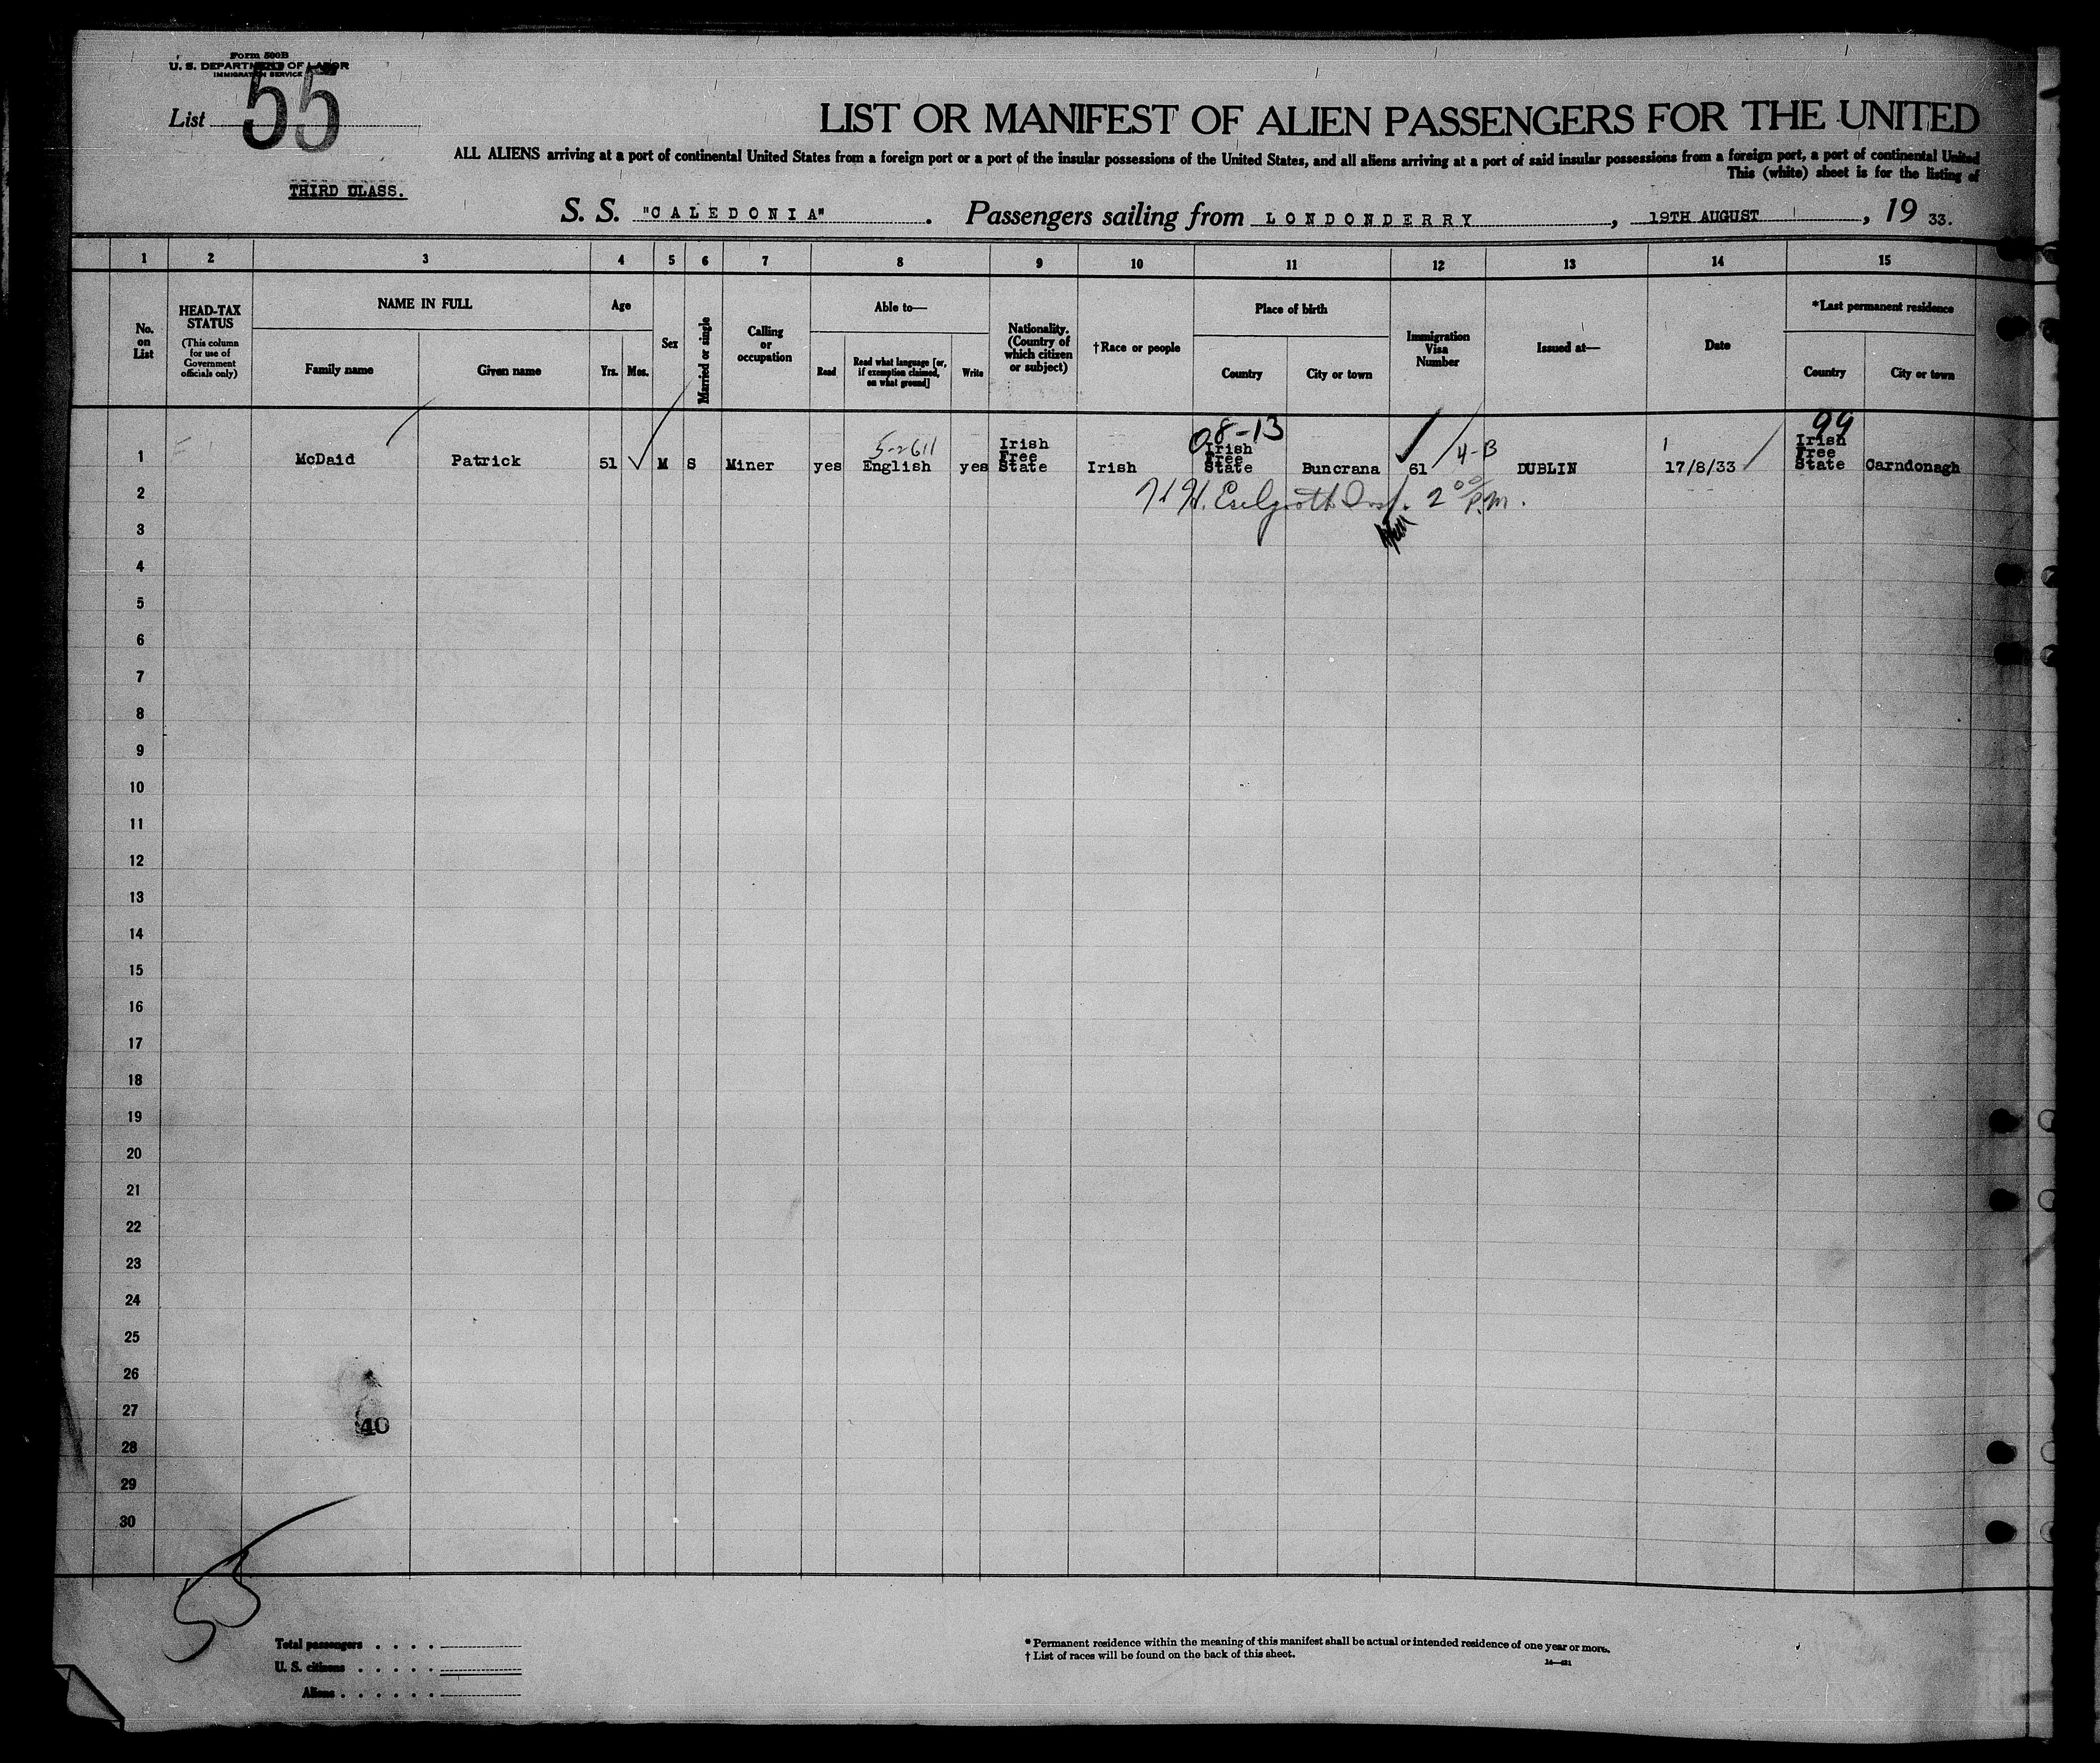 Form 500B
U. S. DEPARTMENT OF LABOR
IMMIGRATION SERVICE
List 55
LIST OR MANIFEST OF ALIEN PASSENGERS FOR THE UNITED
ALL ALIENS arriving at a port of continental United States from a foreign port or a port of the insular possessions of the United States, and all aliens arriving at a port of said insular possessions from a foreign port, a port of continental United
This (white) sheet is for the listing of
THIRD CLASS.
S. S. "CALEDONIA" . Passengers sailing from LONDONDERRY , 19TH AUGUST , 19 33.
1 2 3 4 5 6 7 8 9 10 11 12 13 14 15
No. on List
HEAD-TAX STATUS
(This column for use of Government officials only)
NAME IN FULL
Family name Given name
Age
Yrs. Mos.
Sex
Married or single
Calling or occupation
Able to—
Read Read what language [or, if exemption claimed, on what ground] Write
Nationality. (Country of which citizen or subject)
†Race or people
Place of birth
Country City or town
Immigration Visa Number
Issued at—
Date
*Last permanent residence
Country City or town
08-13 99
5-2611 4-B
1 McDaid Patrick 51 M S Miner yes English yes Irish Free State Irish Irish Free State Buncrana 61 DUBLIN 17/8/33 Irish Free State Carndonagh
2 2 00 P.M.
3
4
5
6
7
8
9
10
11
12
13
14
15
16
17
18
19
20
21
22
23
24
25
26
27
40
28
29
30
Total passengers . . . .
U. S. citizens . . . . .
Aliens . . . . . .
* Permanent residence within the meaning of this manifest shall be actual or intended residence of one year or more.
† List of races will be found on the back of this sheet.